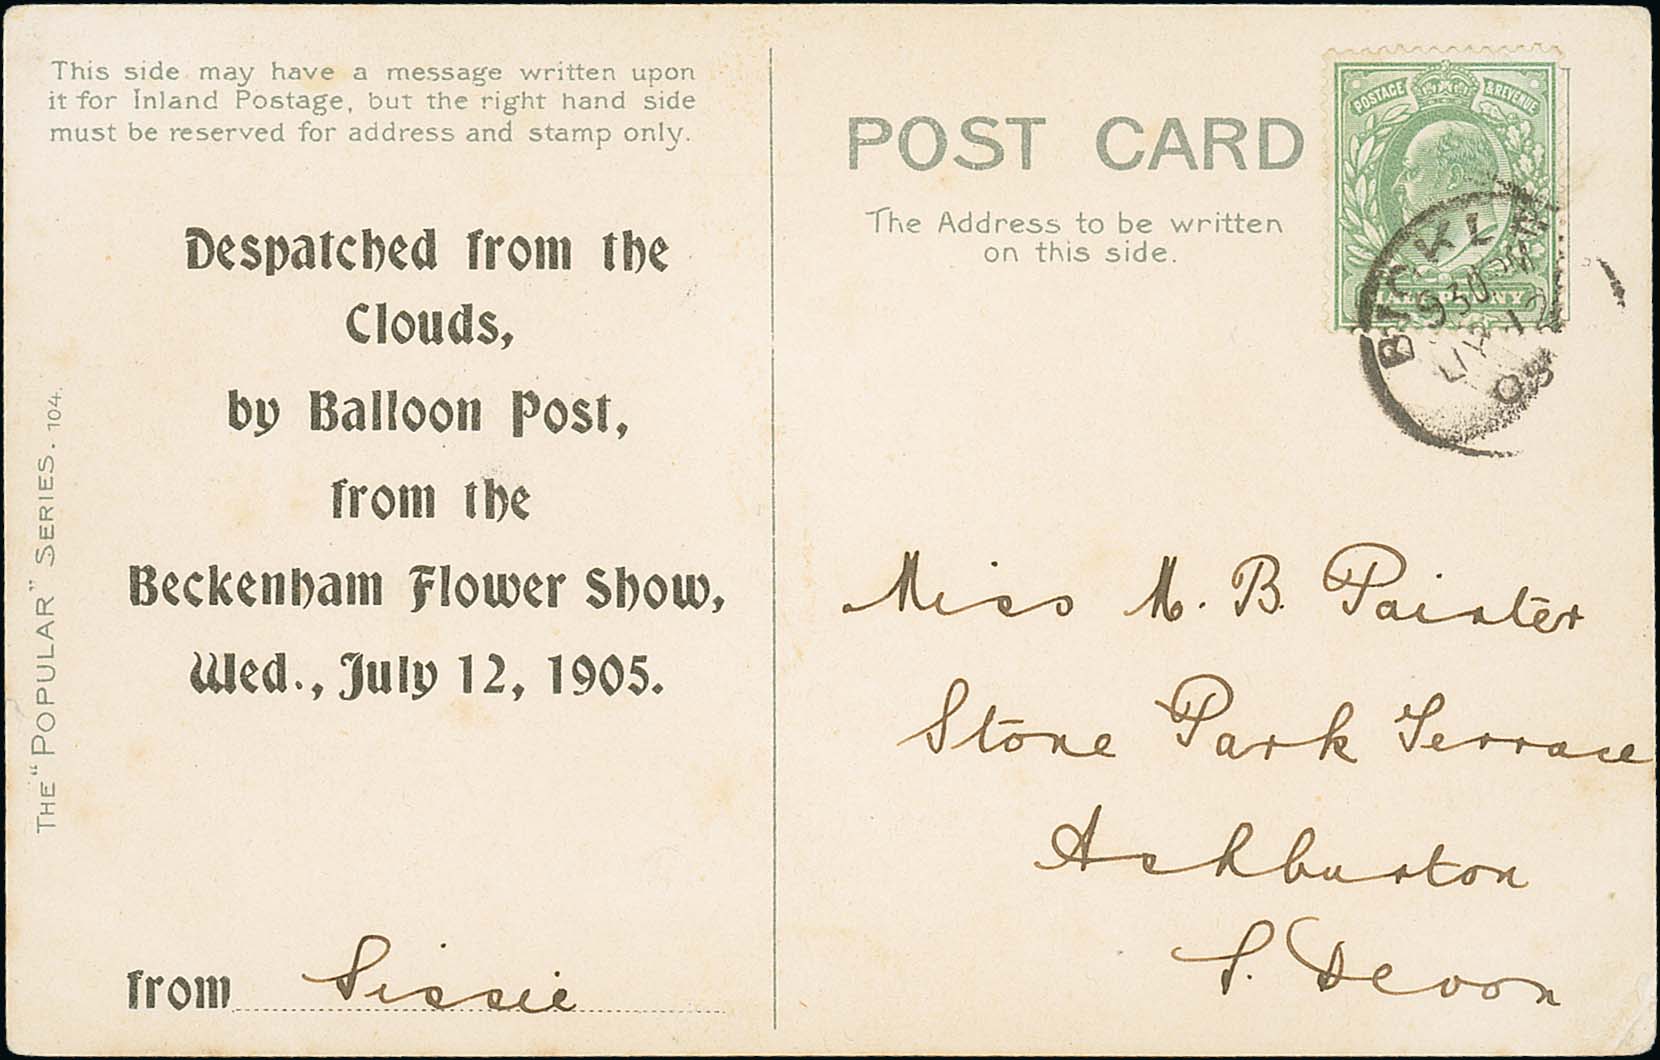 This side may have a message written upon
it for Inland Postage, but the right hand side
must be reserved for address and stamp only.
Despatched from the
Clouds,
by Balloon Post,
from the
Beckenham Flower Show,
Wed., July 12, 1905.
from Sissie
THE "POPULAR" SERIES. 104.
POST CARD
The Address to be written
on this side.
POSTAGE & REVENUE
HALFPENNY
BICKL
9 30 PM
JY 12
05
Miss M. B. Painter
Stone Park Terrace
Ashburton
S. Devon